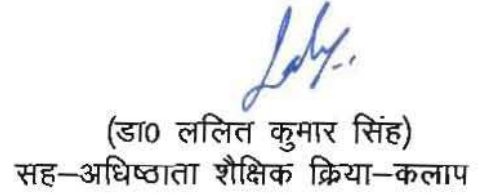 (डा0 ललित कुमार सिंह)
सह–अधिष्ठाता शैक्षिक क्रिया–कलाप